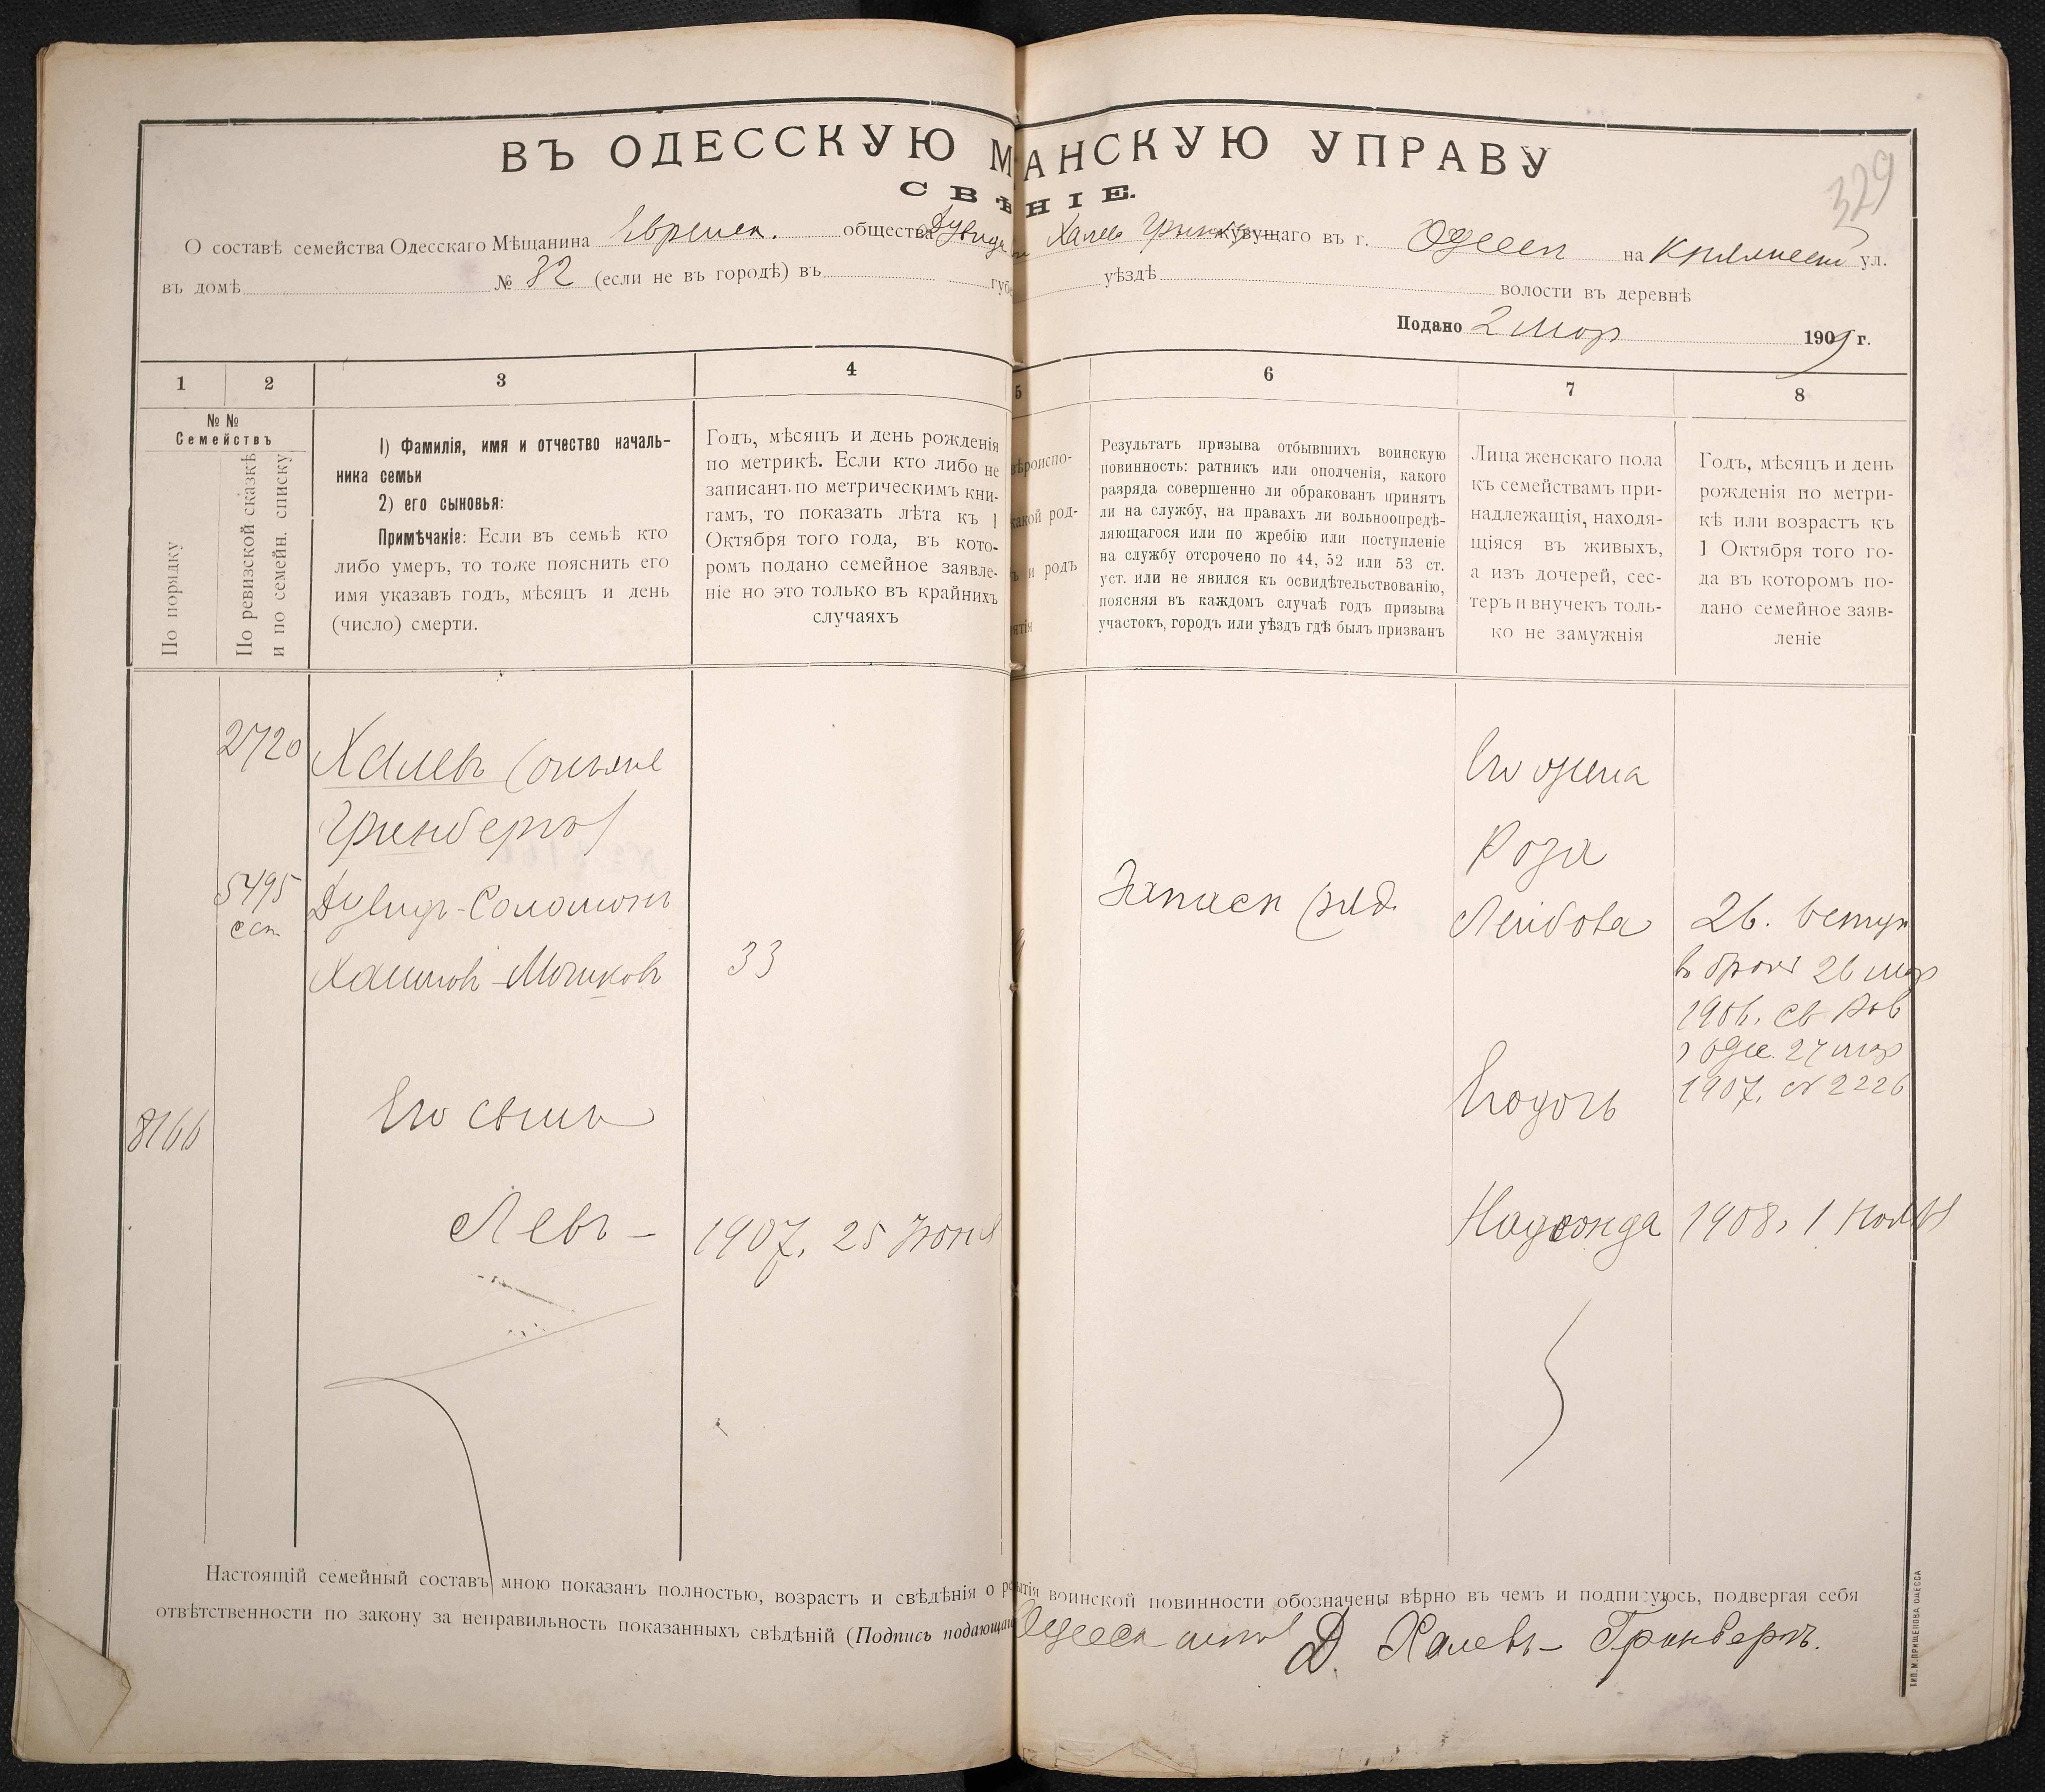 ВЪ ОДЕССКУЮ М АНСКУЮ УПРАВУ
СВѢ НІЕ.
329
О составѣ семейства Одесскаго Мѣщанина Еврейск. общества Дувида Халев Грин живущаго въ г. Одессѣ на ул.
въ домѣ № 32 (если не въ городѣ) въ губе уѣздѣ волости въ деревнѣ
Подано 2 мар 1909 г.
1 2 3 4 5 6 7 8
№ №
Семействъ
По порядку
По ревизской сказкѣ
и по семейн. списку
1) Фамилія, имя и отчество началь-
ника семьи
2) его сыновья:
Примѣчаніе: Если въ семьѣ кто
либо умеръ, то тоже пояснить его
имя указавъ годъ, мѣсяцъ и день
(число) смерти.
Годъ, мѣсяцъ и день рожденія
по метрикѣ. Если кто либо не
записанъ по метрическимъ кни-
гамъ, то показать лѣта къ 1
Октября того года, въ кото-
ромъ подано семейное заявле-
ніе но это только въ крайнихъ
случаяхъ
вѣроиспо-
какой род-
и родъ
ятія
Результатъ призыва отбывшихъ воинскую
повинность: ратникъ или ополченія, какого
разряда совершенно ли обракованъ принятъ
ли на службу, на правахъ ли вольноопредѣ-
ляющагося или по жребію или поступленіе
на службу отсрочено по 44, 52 или 53 ст.
уст. или не явился къ освидѣтельствованію,
поясняя въ каждомъ случаѣ годъ призыва
участокъ, городъ или уѣздъ гдѣ былъ призванъ
Лица женскаго пола
къ семействамъ при-
надлежащія, находя-
щіяся въ живыхъ,
а изъ дочерей, сес-
теръ и внучекъ толь-
ко не замужнія
Годъ, мѣсяцъ и день
рожденія по метри-
кѣ или возрастъ къ
1 Октября того го-
да въ которомъ по-
дано семейное заяв-
леніе
2720 Халевъ (онъ же
Гринбергъ)
5495 Дувидъ-Соломонъ
Хаимов-Мошковъ 33
Запасн ряд.
Его жена
Роза
Лейбова 26. вступ
въ бракъ 26 мар
1906. св Рав
г Одес. 27 мар
1907. № 2226
8166 Его сынъ
Левъ - 1907. 25 Іюня
Его дочь
Надежда 1908. 1 Ноября
Настоящій семейный составъ мною показанъ полностью, возрастъ и свѣдѣнія о ытія воинской повинности обозначены вѣрно въ чемъ и подписуюсь, подвергая себя
отвѣтственности по закону за неправильность показанныхъ свѣдѣній (Подпись подающаго Одесск Д. Халевъ-Гринбергъ.
ТИП. М. ПРИЩЕПОВА ОДЕССА